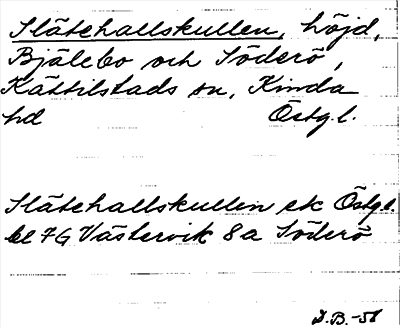 Slätehallskullen, höjd,
Bjälebo och Söderö,
Kättilstads sn, Kinda
hd Östg.l.
Slätehallskullen ek Östg.l.
bl 7G Västervik 8a Söderö
J.B.-58